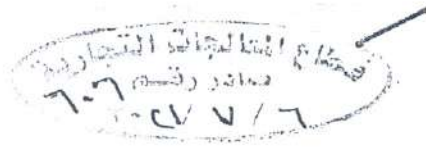 قطاع المعالجات التجارية
صادر رقم ٦٠٦
٦ / ٧ /